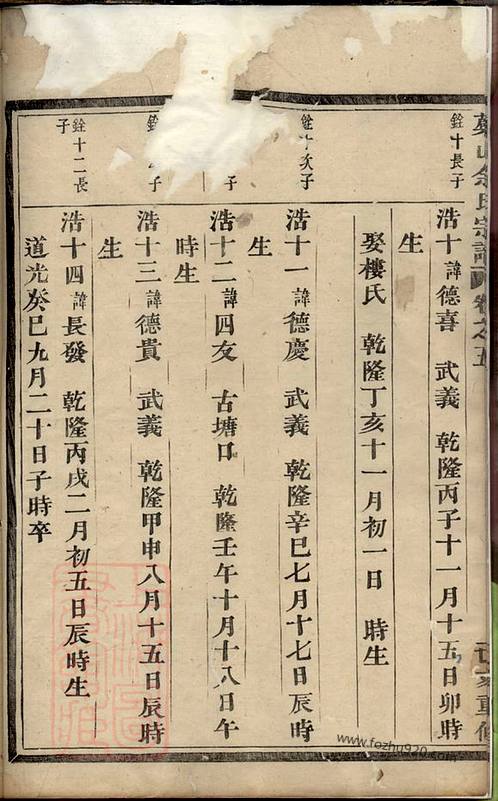 余氏宗譜 卷之五
銓十長子
浩十 諱德喜 武義 乾隆丙子十一月十五日卯時
生
娶樓氏 乾隆丁亥十一月初一日 時生
銓十次子
浩十一 諱德慶 武義 乾隆辛巳七月十七日辰時
生
子
浩十二 諱四友 古塘口 乾隆壬午十月十八日午
時生
銓 子
浩十三 諱德貴 武義 乾隆甲申八月十五日辰時
生
銓十二長
子
浩十四 諱長發 乾隆丙戌二月初五日辰時生
道光癸巳九月二十日子時卒
www.fozhu920.com